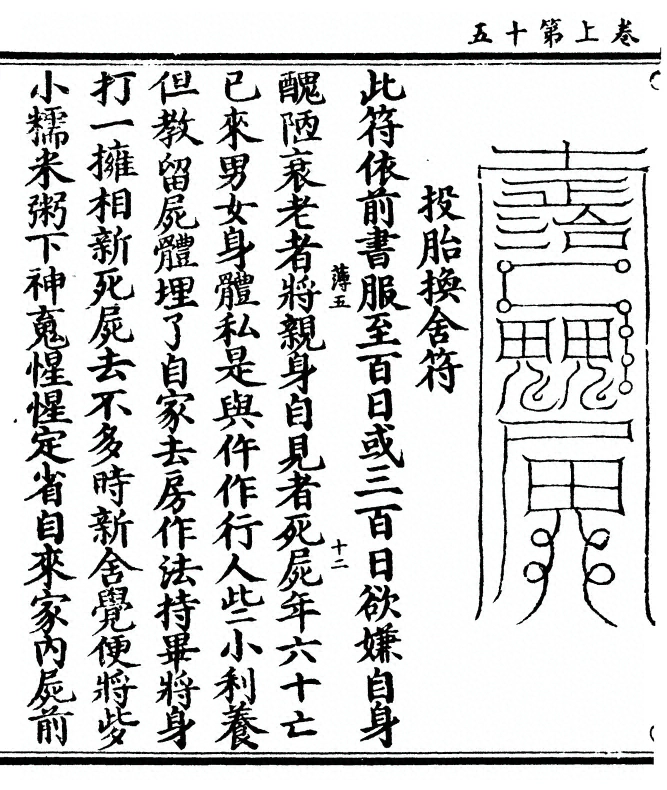 卷上第十五
投胎換舍符
此符依前書服至百日或三百日欲嫌自身
醜陋衰老者將親身自見者死屍年六十亡
薄五
十二
已來男女身體私是與仵作行人些小利養
但教留屍體埋了自家去房作法持畢將身
打一擁相新死屍去不多時新舍覺便將些
小糯米粥下神䰟惺惺定省自來家內屍前